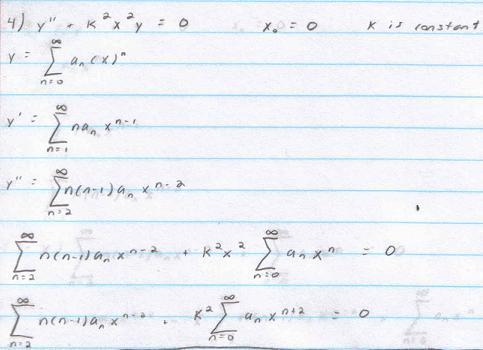 4) y'' + k²x²y = 0    x₀ = 0    k is constant
y = ∑_{n=0}^{∞} aₙ(x)ⁿ
y' = ∑_{n=1}^{∞} naₙxⁿ⁻¹
y'' = ∑_{n=2}^{∞} n(n-1)aₙxⁿ⁻²
∑_{n=2}^{∞} n(n-1)aₙxⁿ⁻² + k²x² ∑_{n=0}^{∞} aₙxⁿ = 0
∑_{n=2}^{∞} n(n-1)aₙxⁿ⁻² + k² ∑_{n=0}^{∞} aₙxⁿ⁺² = 0